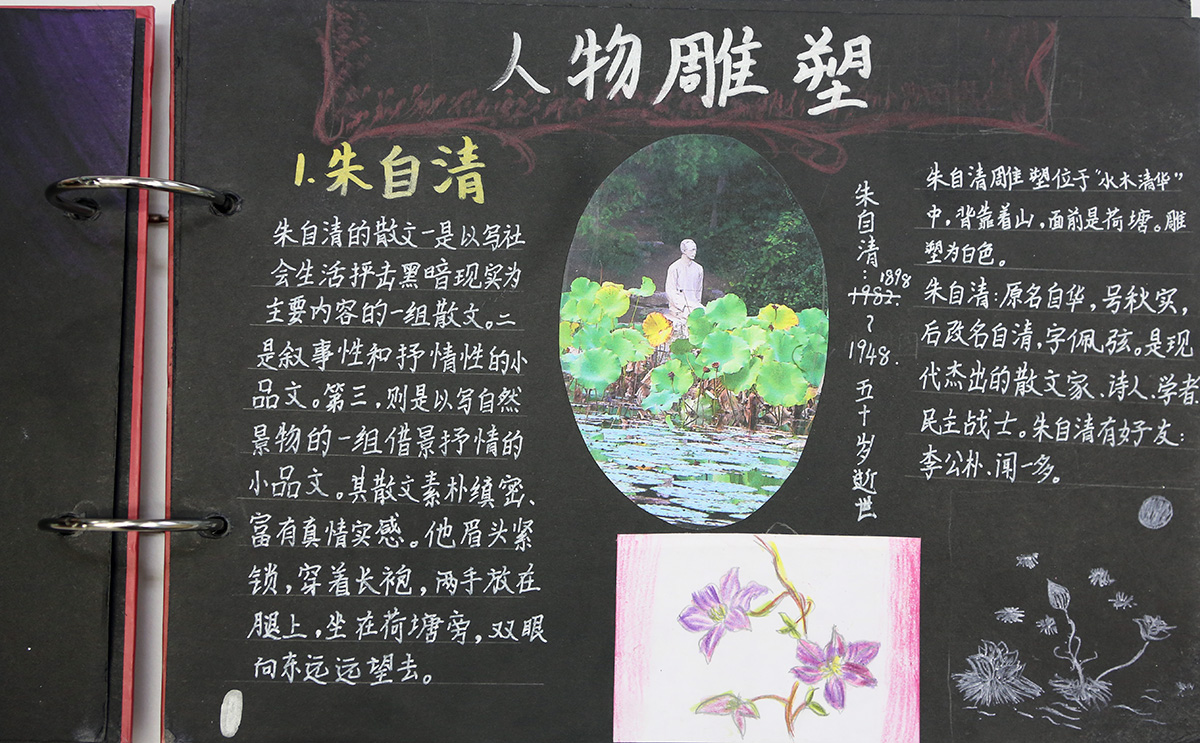 人物雕塑
1.朱自清
朱自清的散文一是以写社
会生活抨击黑暗现实为
主要内容的一组散文。二
是叙事性和抒情性的小
品文。第三,则是以写自然
景物的一组借景抒情的
小品文。其散文素朴缜密、
富有真情实感。他眉头紧
锁,穿着长袍,两手放在
腿上,坐在荷塘旁,双眼
向东远远望去。
朱自清:1898
1982.
~
1948.
五十岁逝世
朱自清雕塑位于“水木清华”
中,背靠着山,面前是荷塘。雕
塑为白色。
朱自清:原名自华,号秋实,
后改名自清,字佩弦。是现
代杰出的散文家、诗人、学者
民主战士。朱自清有好友:
李公朴、闻一多。